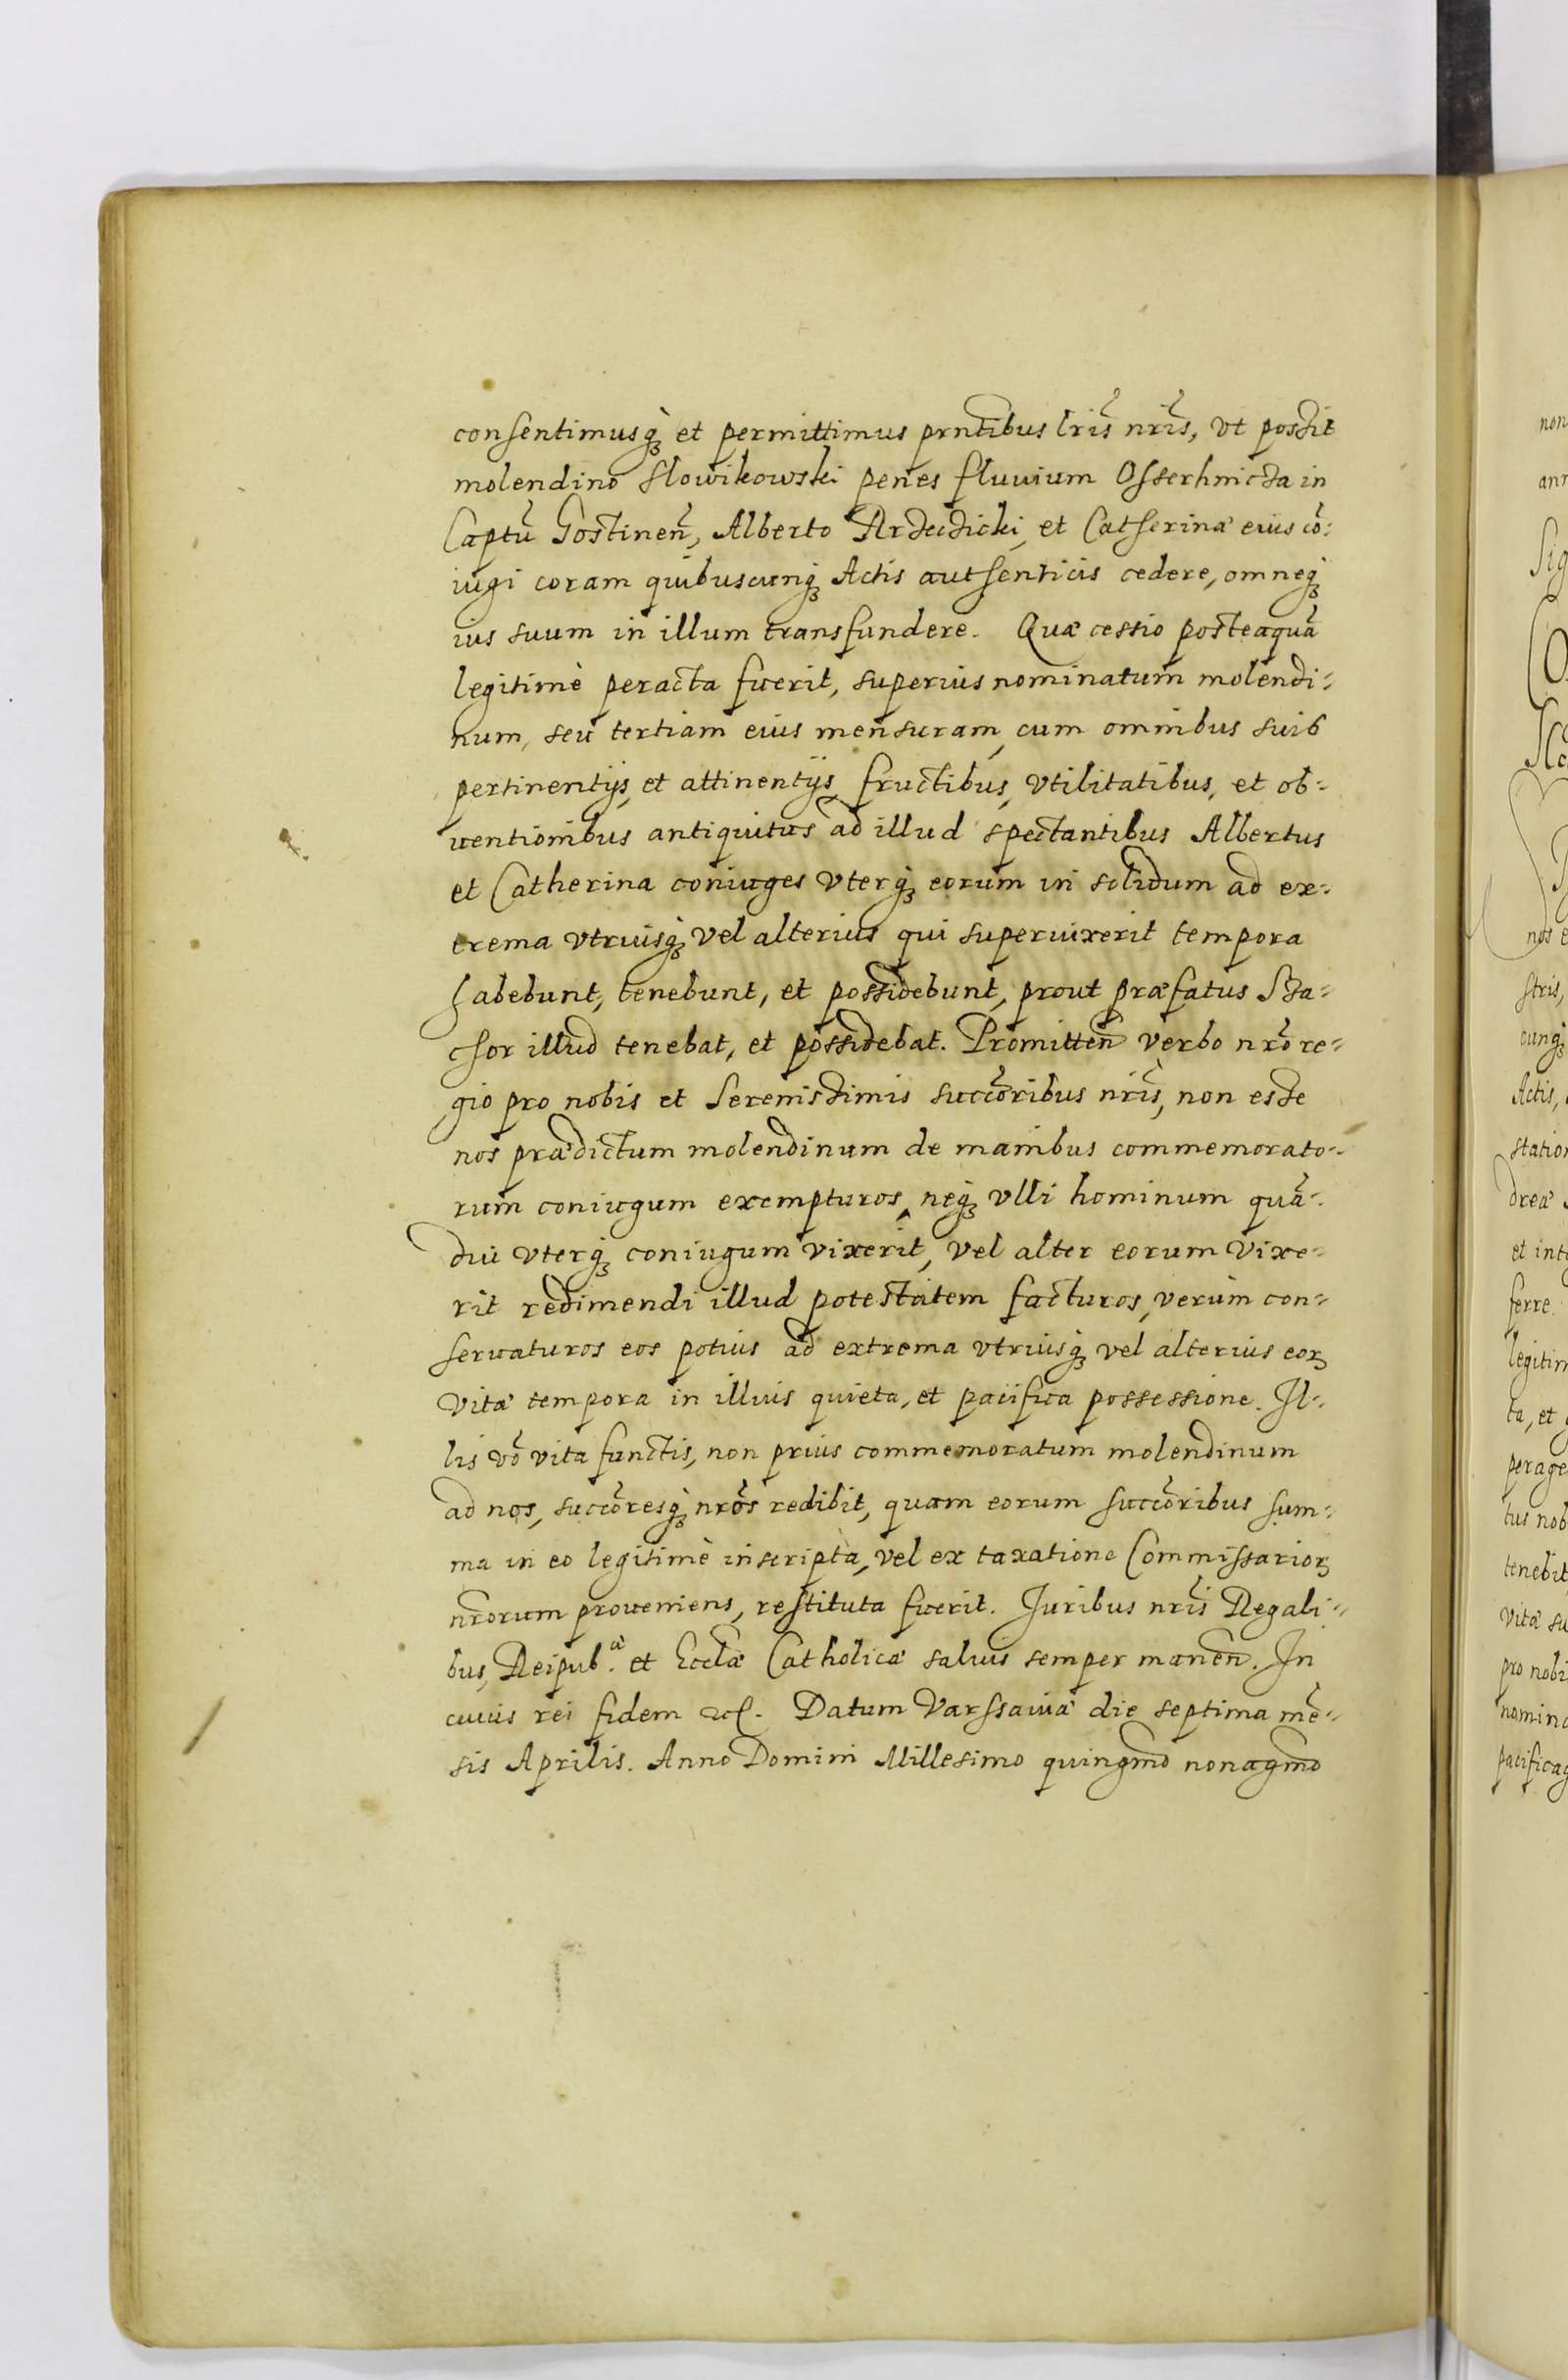 consentimusq̀ꝫ et permittimus prntibus lris nris, vt possit
molendino Slowikowski penes fluuium Osserhnicza in
Captũ Gostinen̄, Alberto et Catherinæ eius cõ:
iugi coram quibuscunqꝫ Actis authenticis cedere, omneqꝫ
ius suum in illum transfundere. Quæ cessio posteaquã
legitimè peracta fuerit, superius nominatum molendi:
num, seu tertiam eius mensuram, cum omnibus suis
pertinentijs, et attinentijs, fructibus, vtilitatibus, et ob:
uentionibus antiquitus ad illud spectantibus Albertus
et Catherina coniuges vterq̀ꝫ eorum in solidum ad ex:
trema vtriusq̀ꝫ vel alterius qui superuixerit tempora
habebunt, tenebunt, et possidebunt, prout præfatus Sza:
chor illud tenebat, et possidebat. Promitten̄ verbo nrõ re:
gio pro nobis et Serenissimis succõribus nris, non esse
nos prædictum molendinum de manibus commemorato:
rum coniugum exempturos, neqꝫ vlli hominum quã:
diu vterqꝫ coniugum vixerit, vel alter eorum vixe:
rit redimendi illud potestatem facturos, verùm con:
seruaturos eos potius ad extrema vtriusqꝫ vel alterius eoꝝ
vitæ tempora in illius quieta, et pacifica possessione. Il:
lis võ vita functis, non prius commemoratum molendinum
ad nos, succõresq̀ꝫ nrõs redibit, quam eorum succõribus sum:
ma in eo legitimè inscripta, vel ex taxatione Commissarioꝝ
nrorum proueniens, restituta fuerit. Juribus nris Regali:
bus, Reipub.æ et Ecclæ Catholicæ saluis semper manen̄. In
cuius rei fidem etc. Datum Varssauiæ die septima mẽ:
sis Aprilis. Anno Domini Millesimo quingmõ nonagmõ